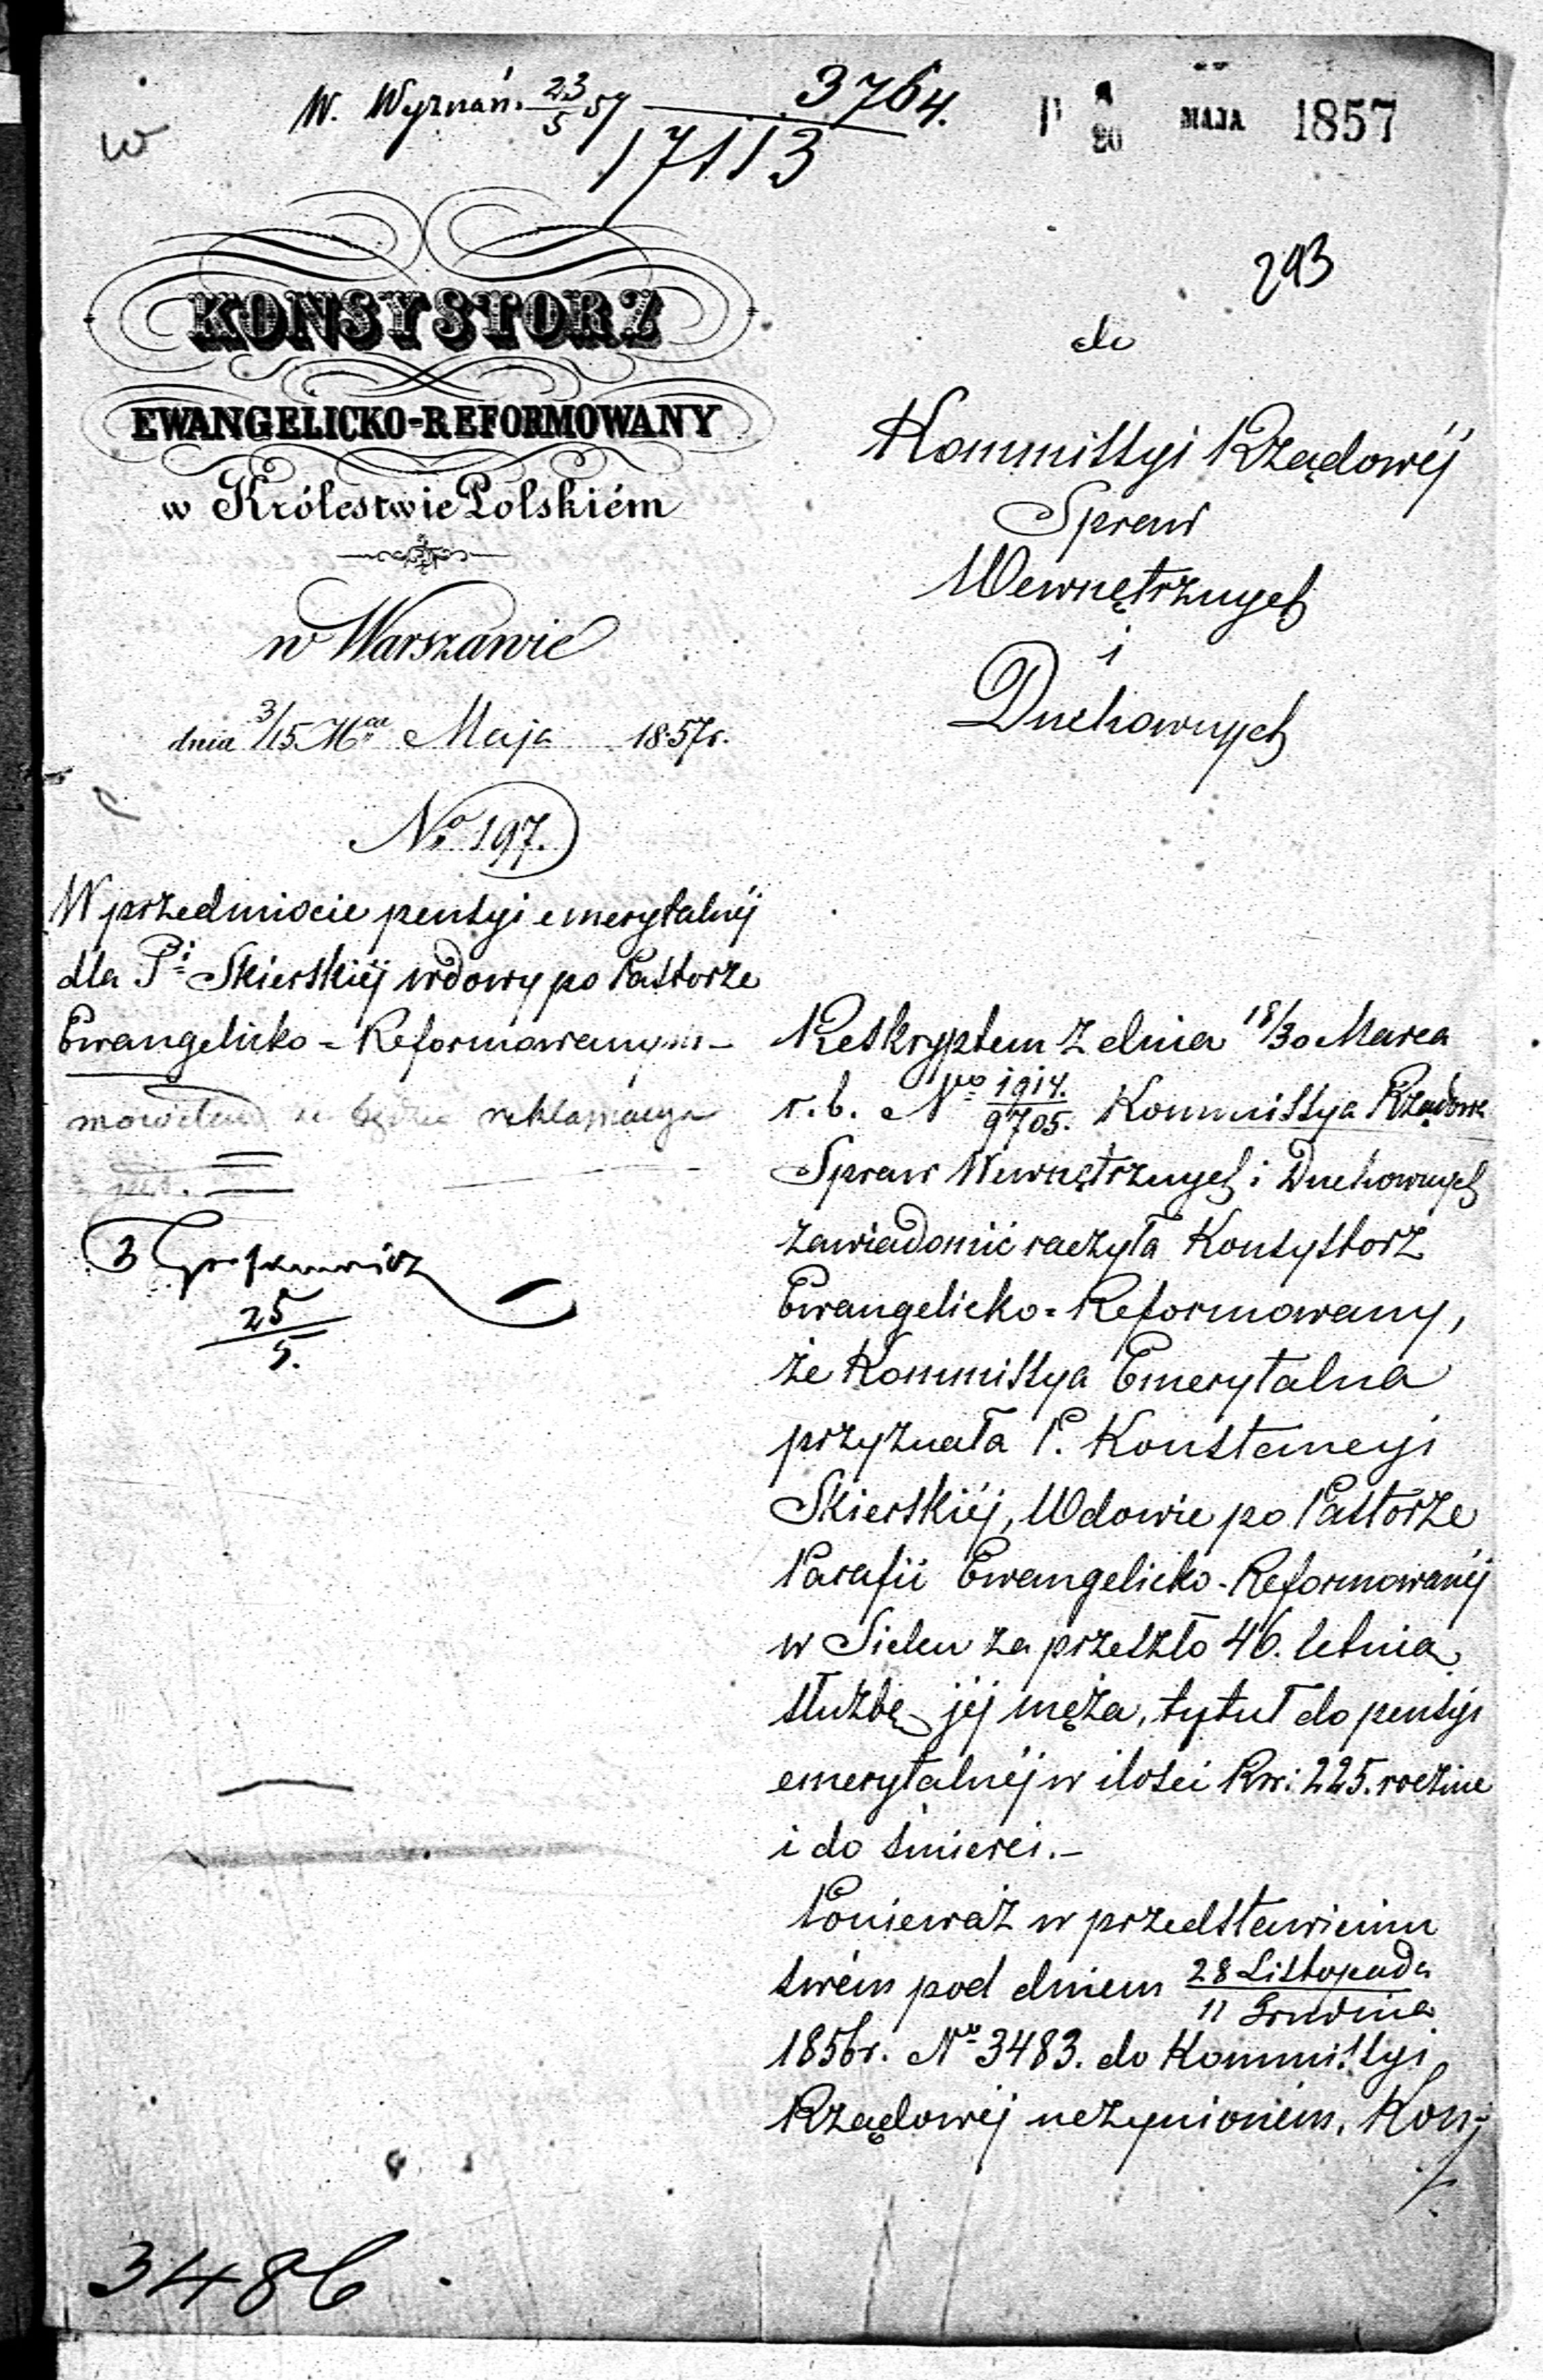 W. Wyznań. 23/5 57 3764.
17113
P 8/20 MAJA 1857
w
293
KONSYSTORZ
EWANGELICKO-REFORMOWANY
w Królestwie Polskiém
w Warszawie
dnia 3/15 Mca Maja 1857r.
No 197.
W przedmiocie pensyi emerytalnéj
dla Pi Skierskiéj wdowy po Pastorze
Ewangelicko-Reformowanym
że będzie reklamacya
25
5.
3486
do
Kommissyi Rządowéj
Spraw
Wewnętrznych
i
Duchownych
Reskryptem z dnia 18/30 Marca
r. b. Nro 1914./9705. Kommissya Rządowa
Spraw Wewnętrznych i Duchownych
zawiadomić raczyła Konsystorz
Ewangelicko-Reformowany,
że Kommissya Emerytalna
przyznała P. Konstancyi
Skierskiéj, Wdowie po Pastorze
Parafii Ewangelicko-Reformowanéj
w Sielcu za przeszło 46. letnią
służbę jéj męża, tytuł do pensyi
emerytalnéj w ilości Rsr: 225. rocznie
i do śmierci.-
Ponieważ w przedstawieniu
swém pod dniem 28 Listopada
11 Grudnia
1856r. Nro 3483. do Kommissyi
Rządowéj uczynioném, Kon-